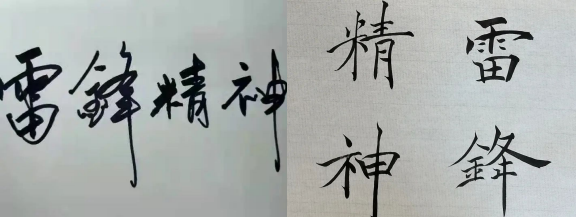 雷鋒精神
雷鋒
精神